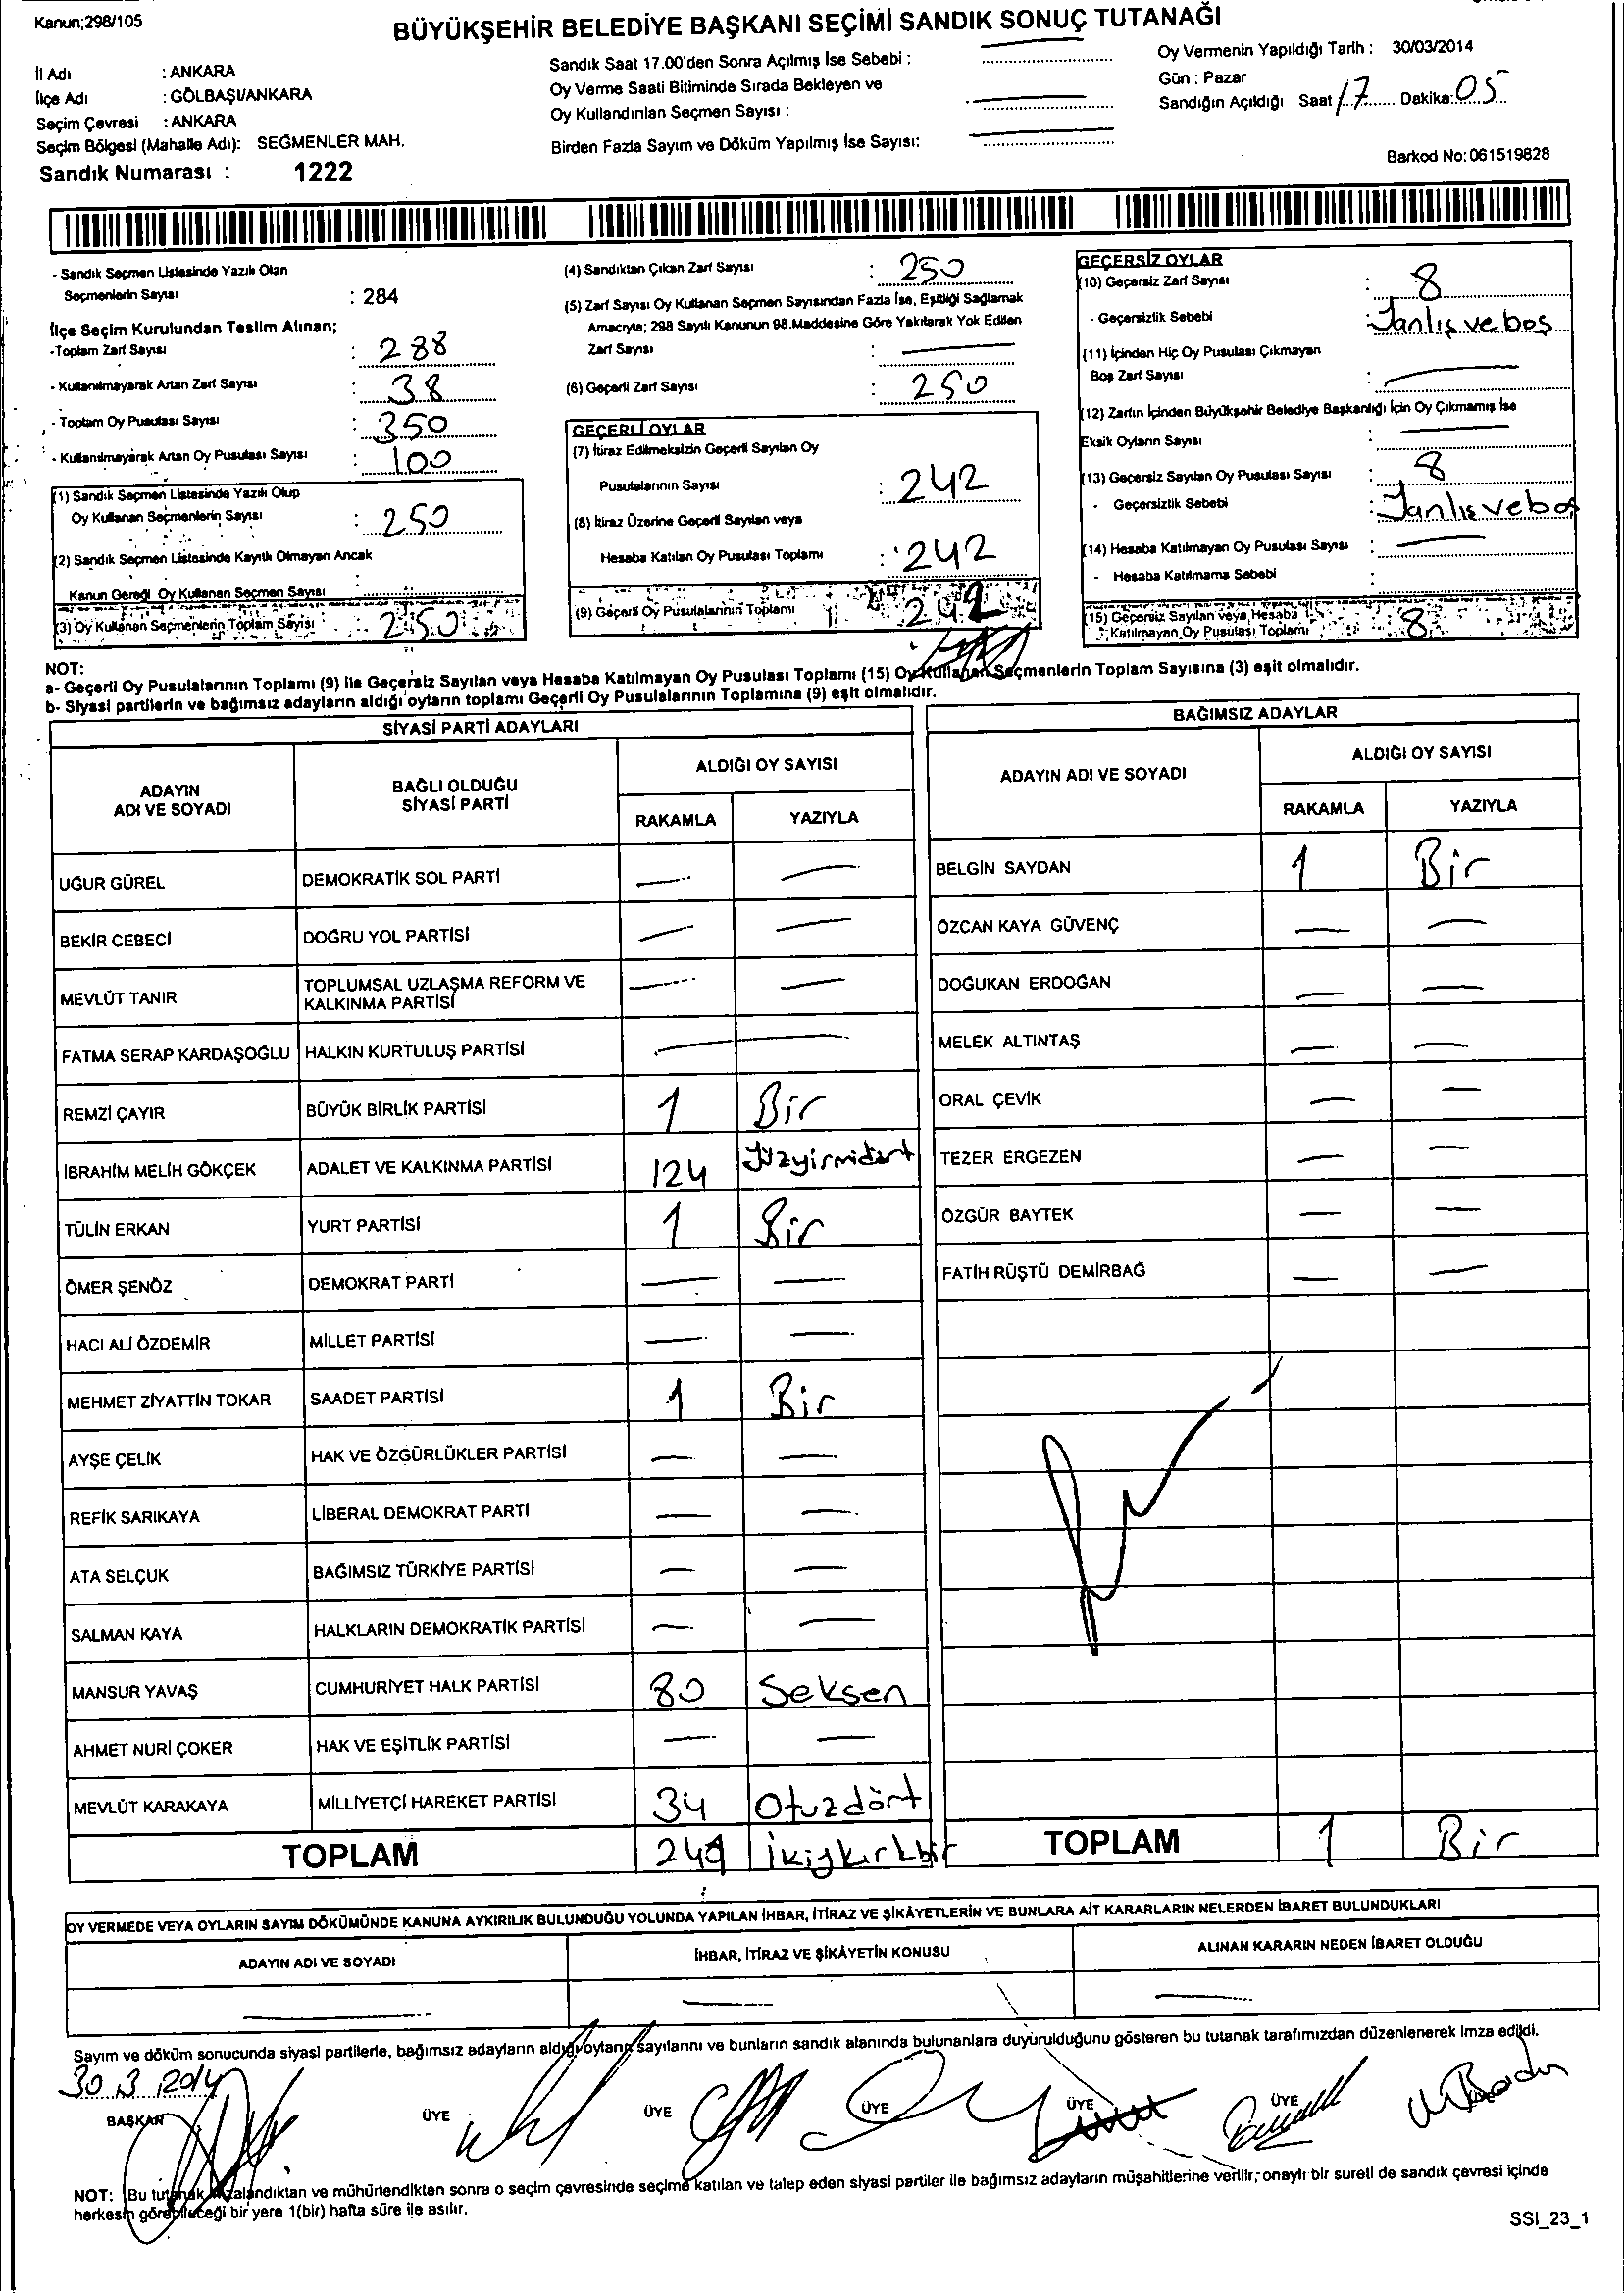 Kanun;298/105
BÜYÜKŞEHİR BELEDİYE BAŞKANI SEÇİMİ SANDIK SONUÇ TUTANAĞI
İl Adı : ANKARA
İlçe Adı : GÖLBAŞI/ANKARA
Seçim Çevresi : ANKARA
Seçim Bölgesi (Mahalle Adı): SEĞMENLER MAH.
Sandık Numarası : 1222
Sandık Saat 17.00'den Sonra Açılmış İse Sebebi :
Oy Verme Saati Bitiminde Sırada Bekleyen ve
Oy Kullandırılan Seçmen Sayısı :
Birden Fazla Sayım ve Döküm Yapılmış İse Sayısı:
Oy Vermenin Yapıldığı Tarih : 30/03/2014
Gün : Pazar
Sandığın Açıldığı Saat 17 Dakika: 05
Barkod No: 061519828
- Sandık Seçmen Listesinde Yazılı Olan
Seçmenlerin Sayısı : 284
İlçe Seçim Kurulundan Teslim Alınan;
-Toplam Zarf Sayısı : 288
- Kullanılmayarak Artan Zarf Sayısı : 38
- Toplam Oy Pusulası Sayısı : 350
- Kullanılmayarak Artan Oy Pusulası Sayısı : 100
(1) Sandık Seçmen Listesinde Yazılı Olup
Oy Kullanan Seçmenlerin Sayısı : 250
(2) Sandık Seçmen Listesinde Kayıtlı Olmayan Ancak
Kanun Gereği Oy Kullanan Seçmen Sayısı :
(3) Oy Kullanan Seçmenlerin Toplam Sayısı : 250
(4) Sandıktan Çıkan Zarf Sayısı : 250
(5) Zarf Sayısı Oy Kullanan Seçmen Sayısından Fazla İse, Eşitliği Sağlamak
Amacıyla; 298 Sayılı Kanunun 98.Maddesine Göre Yakılarak Yok Edilen
Zarf Sayısı :
(6) Geçerli Zarf Sayısı : 250
GEÇERLİ OYLAR
(7) İtiraz Edilmeksizin Geçerli Sayılan Oy
Pusulalarının Sayısı : 242
(8) İtiraz Üzerine Geçerli Sayılan veya
Hesaba Katılan Oy Pusulası Toplamı : 242
(9) Geçerli Oy Pusulalarının Toplamı 242
GEÇERSİZ OYLAR
(10) Geçersiz Zarf Sayısı : 8
- Geçersizlik Sebebi : Yanlış ve boş
(11) İçinden Hiç Oy Pusulası Çıkmayan
Boş Zarf Sayısı :
(12) Zarfın İçinden Büyükşehir Belediye Başkanlığı İçin Oy Çıkmamış İse
Eksik Oyların Sayısı :
(13) Geçersiz Sayılan Oy Pusulası Sayısı : 8
- Geçersizlik Sebebi : Yanlış ve boş
(14) Hesaba Katılmayan Oy Pusulası Sayısı :
- Hesaba Katılmama Sebebi :
(15) Geçersiz Sayılan veya Hesaba
Katılmayan Oy Pusulası Toplamı : 8
NOT:
a- Geçerli Oy Pusulalarının Toplamı (9) ile Geçersiz Sayılan veya Hesaba Katılmayan Oy Pusulası Toplamı (15) Oy Kullanan Seçmenlerin Toplam Sayısına (3) eşit olmalıdır.
b- Siyasi partilerin ve bağımsız adayların aldığı oyların toplamı Geçerli Oy Pusulalarının Toplamına (9) eşit olmalıdır.
SİYASİ PARTİ ADAYLARI
ADAYIN ADI VE SOYADI BAĞLI OLDUĞU SİYASİ PARTİ ALDIĞI OY SAYISI
RAKAMLA YAZIYLA
UĞUR GÜREL DEMOKRATİK SOL PARTİ
BEKİR CEBECİ DOĞRU YOL PARTİSİ
MEVLÜT TANIR TOPLUMSAL UZLAŞMA REFORM VE KALKINMA PARTİSİ
FATMA SERAP KARDAŞOĞLU HALKIN KURTULUŞ PARTİSİ
REMZİ ÇAYIR BÜYÜK BİRLİK PARTİSİ 1 Bir
İBRAHİM MELİH GÖKÇEK ADALET VE KALKINMA PARTİSİ 124 Yüzyirmidört
TÜLİN ERKAN YURT PARTİSİ 1 Bir
ÖMER ŞENÖZ DEMOKRAT PARTİ
HACI ALİ ÖZDEMİR MİLLET PARTİSİ
MEHMET ZİYATTİN TOKAR SAADET PARTİSİ 1 Bir
AYŞE ÇELİK HAK VE ÖZGÜRLÜKLER PARTİSİ
REFİK SARIKAYA LİBERAL DEMOKRAT PARTİ
ATA SELÇUK BAĞIMSIZ TÜRKİYE PARTİSİ
SALMAN KAYA HALKLARIN DEMOKRATİK PARTİSİ
MANSUR YAVAŞ CUMHURİYET HALK PARTİSİ 80 Seksen
AHMET NURİ ÇOKER HAK VE EŞİTLİK PARTİSİ
MEVLÜT KARAKAYA MİLLİYETÇİ HAREKET PARTİSİ 34 Otuzdört
TOPLAM
BAĞIMSIZ ADAYLAR
ADAYIN ADI VE SOYADI ALDIĞI OY SAYISI
RAKAMLA YAZIYLA
BELGİN SAYDAN 1 Bir
ÖZCAN KAYA GÜVENÇ
DOĞUKAN ERDOĞAN
MELEK ALTINTAŞ
ORAL ÇEVİK
TEZER ERGEZEN
ÖZGÜR BAYTEK
FATİH RÜŞTÜ DEMİRBAĞ
TOPLAM 1 Bir
OY VERMEDE VEYA OYLARIN SAYIM DÖKÜMÜNDE KANUNA AYKIRILIK BULUNDUĞU YOLUNDA YAPILAN İHBAR, İTİRAZ VE ŞİKÂYETLERİN VE BUNLARA AİT KARARLARIN NELERDEN İBARET BULUNDUKLARI
ADAYIN ADI VE SOYADI İHBAR, İTİRAZ VE ŞİKÂYETİN KONUSU ALINAN KARARIN NEDEN İBARET OLDUĞU
Sayım ve döküm sonucunda siyasi partilerle, bağımsız adayların aldığı oyların sayılarını ve bunların sandık alanında bulunanlara duyurulduğunu gösteren bu tutanak tarafımızdan düzenlenerek imza edildi.
30.3.2014
BAŞKAN ÜYE ÜYE ÜYE ÜYE ÜYE
NOT: Bu tutanak imzalandıktan ve mühürlendikten sonra o seçim çevresinde seçime katılan ve talep eden siyasi partiler ile bağımsız adayların müşahitlerine verilir; onaylı bir sureti de sandık çevresi içinde
herkesin görebileceği bir yere 1(bir) hafta süre ile asılır.
SSI_23_1